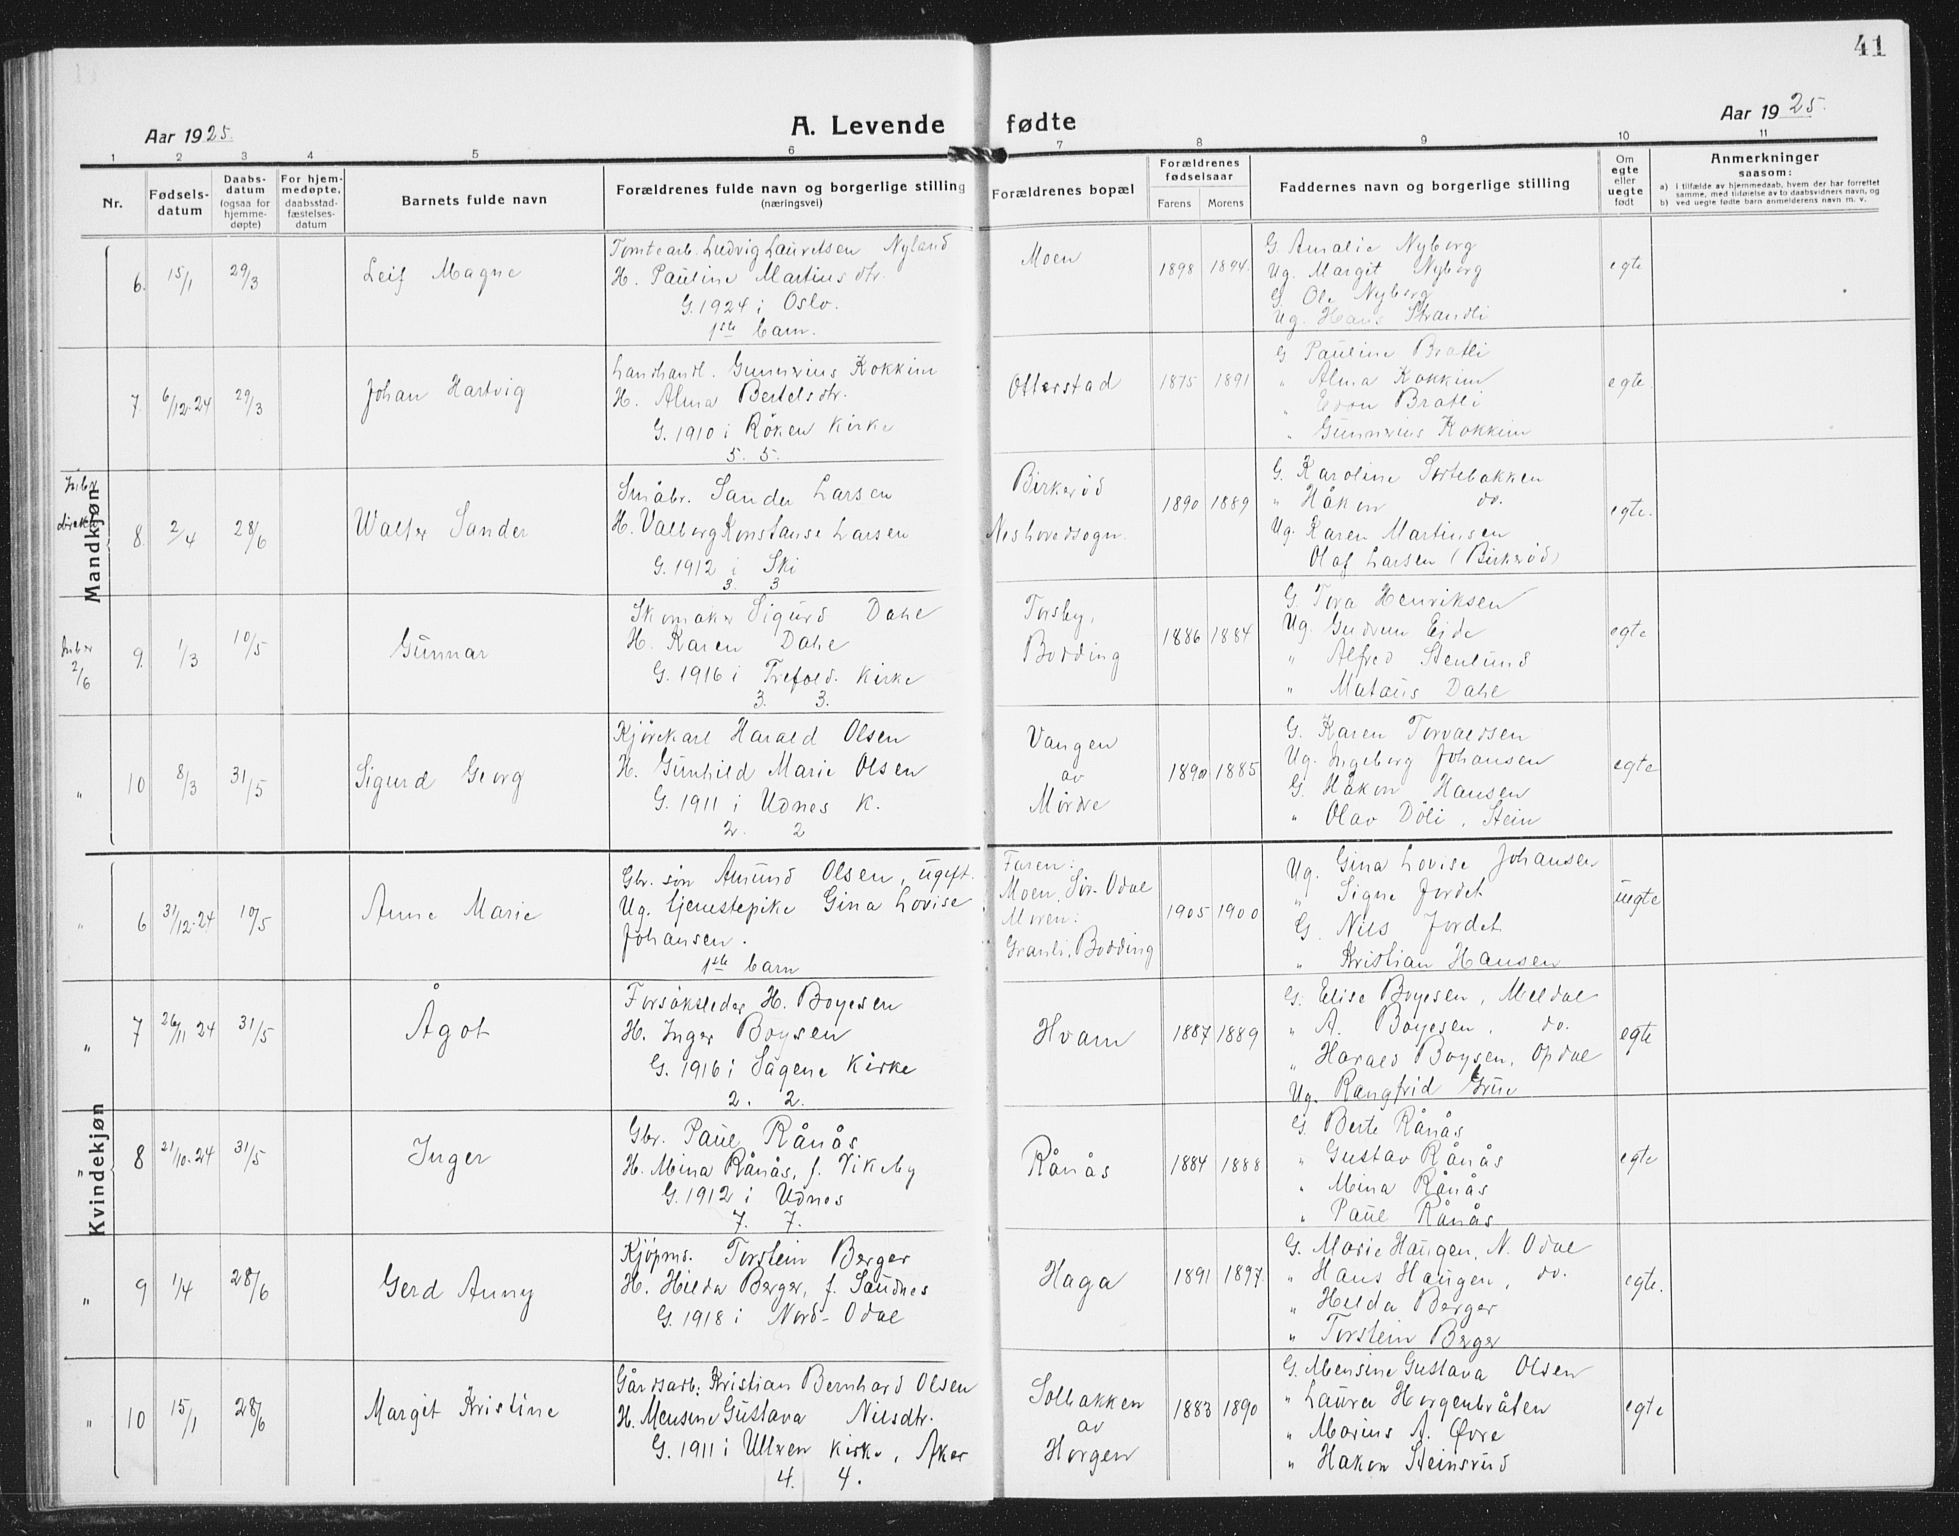 41
Aar 1925.
A. Levende fødte
Aar 1925.
1 2 3 4 5 6 7 8 9 10 11
Nr.
Fødselsdatum
Daabsdatum (ogsaa for hjemmedøpte)
For hjemmedøpte, daabsstadfæstelsesdatum
Barnets fulde navn
Forældrenes fulde navn og borgerlige stilling (næringsvei)
Forældrenes bopæl
Forældrenes fødselsaar
Farens Morens
Faddernes navn og borgerlige stilling
Om egte eller uegte født
Anmerkninger saasom:
a) i tilfælde av hjemmedaab, hvem der har forrettet samme, med tilføielse av to daabsvidners navn, og
b) ved uegte fødte barn anmelderens navn m. v.
Mandkjøn
6. 15/1 29/3 Leif Magne
Tomtearb. Ludvig Lauritsen Nyland
H. Pauline Martinsdtr.
G. 1924 i Oslo.
1ste barn.
Moen
1898 1894.
G. Amalie Nyborg
Ug. Margit Nyborg
G. Ole Nyborg
Ug. Hans Strandli
egte
7. 6/12-24 29/3 Johan Hartvig
Landhandl. Gunnerius Kokkim
H. Alma Bertelsdtr.
G. 1910 i Röken Kirke
5. 5.
Otterstad
1875 1891
G. Pauline Bratli
" Alma Kokkim
" Edon Bratli
" Gunnerius Kokkim
egte
8. 2/4 28/6 Walter Sander
Småbr. Sander Larsen
H. Valborg Konstanse Larsen
G. 1912 i Ski
3 3
Birkerød
Neshovedsogn.
1890 1889
G. Karoline Sortebakken
" Håkon do.
Ug. Karen Martinsen
Olaf Larsen (Birkerød)
egte.
2/6
9. 1/3 10/5 Gunnar
Skomaker Sigurd Dahl
H. Karen Dahl
G. 1916 i Trefold. Kirke
3. 3.
Torsby,
Bodding
1886 1884
G. Tora Henriksen
Ug. Gudrun Eide
" Alfred Stenlund
" Mataus Dahl
egte
" 10 8/3 31/5 Sigurd Georg
Kjörekarl Harald Olsen
H. Gunhild Marie Olsen
G. 1911 i Udnes K.
2. 2
Vangen
av
Mördre
1890 1885
G. Karen Torvaldsen
Ug. Ingeborg Johansen
G. Håkon Hansen
" Olav Döli, Stein
egte
Kvindekjøn
" 6 31/12-24 10/5 Anne Marie
Gbr. sön Amund Olsen, ugift.
Ug. tjenestepike Gina Lovise
Johansen.
1ste barn
Faren:
Moen, Sör-Odal
Moren:
Granli, Bodding
1905 1900
Ug. Gina Lovise Johansen
" Signe Jordet
G. Nils Jordet
" Kristian Hansen
uegte
" 7 26/11 24 31/5 Ågot
Forsöksleder H. Boyesen
H. Inger Boysen
G. 1916 i Sagene Kirke
2. 2.
Hvam
1887 1889
G. Elise Boyesen, Meldal
" A. Boyesen, do.
" Harald Boysen, Opdal
Ug. Rangfrid Grue
egte
" 8 21/10-24 31/5 Inger
Gbr. Paul Rånås
H. Mina Rånås, f. Vikeby
G. 1912 i Udnes
7. 7.
Rånås
1884 1888
G. Berte Rånås
" Gustav Rånås
" Mina Rånås
" Paul Rånås
egte
" 9 1/4 28/6 Gerd Anny
Kjöpms. Torstein Berger
H. Hilda Berger, f. Saudnes
G. 1918 i Nord-Odal
Haga
1891 1897
G. Marie Haugen, N. Odal
" Hans Haugen, do.
" Hilda Berger
" Torstein Berger
egte.
" 10 15/1 28/6 Margit Kristine
Gårdsarb: Kristian Bernhard Olsen
H. Mensine Gustava Nilsdtr.
G. 1911 i Ullern kirke, Aker
4. 4.
Solbakken
av
Horgen
1883 1890
G. Mensine Gustava Olsen
" Laura Horgenbråten
" Marius A. Övre
" Håkon Steinsrud
egte